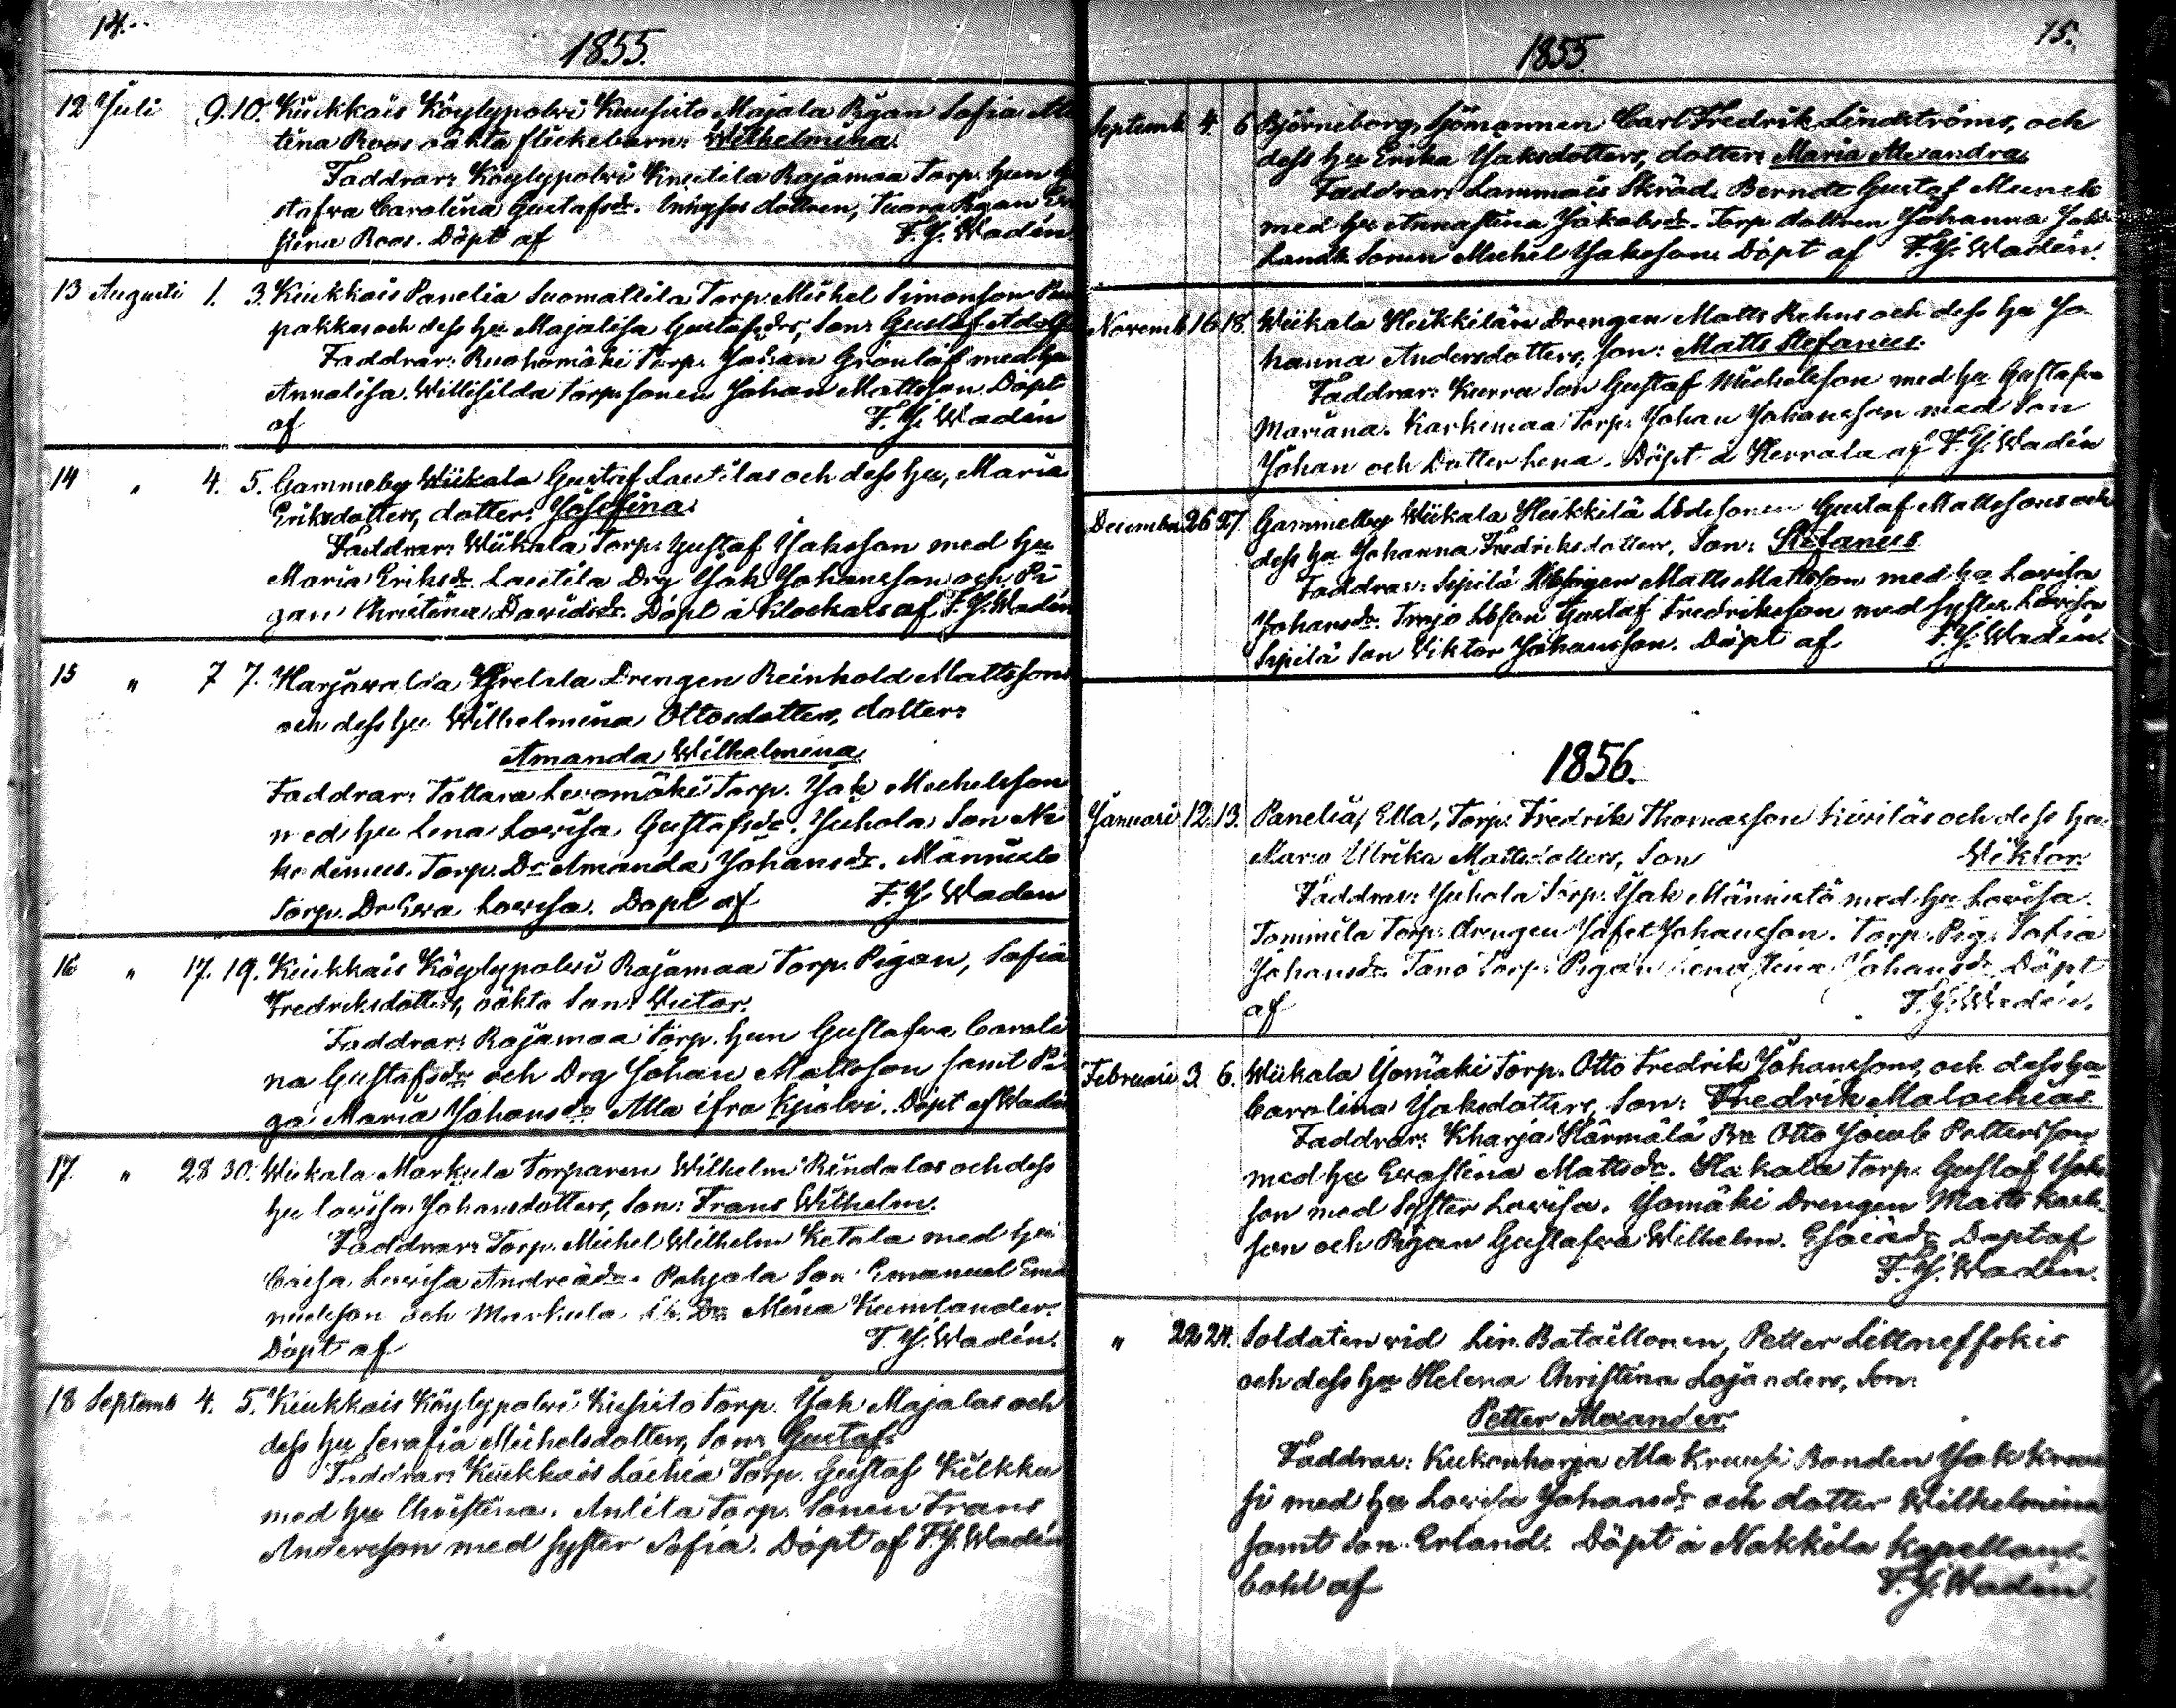 14.
1855.
12 Juli 9. 10. Kiukkais Köylypolvi Kuusisto Majala Pigan Sofia
tina Roos oäkta flickebarn: Wilhelmina.
Faddrar: Köylypolvi Knuutila Rajamaa Torp. hun
stafva Carolina Gustafsdr. dottren, Pigan
stina Roos. Döpt af F. J. Wadén
13 Augusti 1. 3. Kiukkais Panelia Suomattila Torp. Michel Simonson
pakkas och dess hu Majalisa Gustafsdrs, Son: Gustaf Adolf
Faddrar: Ruohomäki Torp. Johan Grönlöf med hu
Annalisa. Willisilda torpsonen Johan Mattsson. Döpt
af F. J. Wadén
14 " 4. 5. Gammelby Wiikala Gustaf Lautilas och dess hu, Maria
Eriksdotters, dotter: Josefina.
Faddrar: Wiikala Torp. Gustaf Jaksson med hu
Maria Eriksdr. Lautila Drg Jak Johansson och Pi
gan Christina Davidsdr. Döpt å Klockars af F. J. Wadén
15 " 7 7. Harjavalda Drengen Reinhold Mattssons
och dess hu Wilhelmina Ottosdotters, dotter:
Amanda Wilhelmina
Faddrar: Tattara Levomäki Torp. Jak Michelsson
med hu Lena Lovisa Gustafsdr. Juhola Son Ni
kodimus. Torp. Dr Amanda Johansdr. Männistö
Torp. Dr Eva Lovisa. Döpt af F. J. Wadén
16 " 17. 19. Kiukkais Köylypolvi Rajamaa Torp. Pigan, Sofia
Fredriksdotters, oäkta Son: Victor.
Faddrar: Rajamaa Torp. hun Gustafva Caroli
na Gustafsdr och Drg Johan Mattsson samt Pi
ga Maria Johansdr Alla ifra Kjolvi. Döpt af Wadén
17. " 28 30. Wiikala Markula Torparen Wilhelm Rindalas och dess
hu Lovisa Johansdotters, Son: Frans Wilhelm.
Faddrar: Torp. Michel Wilhelm Ketola med hu
Caisa Lovisa Andreædr. Pohjala Son Emanuel Ema
nuelson och Markula Dr. Mina Kumlander.
Döpt af F. J. Wadén.
18 Septemb 4. 5. Kiukkais Köylypolvi Kuusisto Torp. Jak Majalas och
dess hu Serafia Michelsdotters, Son: Gustaf.
Faddrar: Kiukkais Laihia Torp. Gustaf Kilkku
med hu Christina. Antila Torp. Sonen Frans
Andersson med syster Sofia. Döpt af F. J. Wadén
15.
1855
Septemb. 4. 6 Björneborg, Sjömannen Carl Fredrik Lindströms, och
dess hu Erika Jaksdotters, dotter: Maria Alexandra.
Faddrar: Lammais Skräd. Berndt Gustaf Munck
med hu Annastina Jakobsdr. Torp dottren Johanna
Sonen Michel Jaksson. Döpt af F. J. Wadén.
Novemb. 16 18. Wiikala Heikkilän Drengen Matts Rehns och dess hu Jo
hanna Andersdotters, Son: Matts Stefanus.
Faddrar: Kurra Son Gustaf Michelsson med hu Gustafva
Mariana. Karhimaa Torp. Johan Johansson med Son
Johan och Dotter Lena. Döpt å Herrala af F. J. Wadén
December 26 27. Gammelby Wiikala Heikkilä Sonen Gustaf Mattssons och
dess hu Johanna Fredriksdotters, Son: Stefanus
Faddrar: Sipilä Matts Mattsson med hu Lovisa
Johansdr. Trojo Gustaf Fredriksson med syster Lovisa
Sipilä Son Viktor Johansson. Döpt af F. J. Wadén.
1856.
Januari 12. 13. Panelia, Ella, Torp. Fredrik Thomasson Kiviläs och dess hu
Maria Ulrika Mattsdotters, Son Wiktor.
Faddrar: Juhola Torp. Jak Männistö med hu Lovisa.
Tommila Torp. drengen Jafet Johansson. Torp. Pig. Sofia
Johansdr. Tano Torp. Pigan Lena Stina Johansdr. Döpt
af F. J. Wadén.
Februari 3. 6. Wiikala Jomäki Torp. Otto Fredrik Johanssons, och dess hu
Carolina Jaksdotters, Son: Fredrik Malachias
Faddrar: Kharja Härmälä Otto Jacob Pettersson
med hu Evastina Mattsdr. Hakala Torp. Gustaf Jak
son med Syster Lovisa. Jomäki Drengen Matts Karls
son och Pigan Gustafva Wilhelm. Esaiædr. Döpt af
F. J. Wadén.
" 22 24. Soldaten vid Lin. Bataillonen, Petter
och dess hu Helena Christina Lojanders, Son:
Petter Alexander
Faddrar: Kukonharja Ala Kruusi Bonden Jak Kruu
si med hu Lovisa Johansdr och dotter Wilhelmina
samt Son Erland. Döpt å Nakkila Kapellans
bohl af F. J. Wadén.